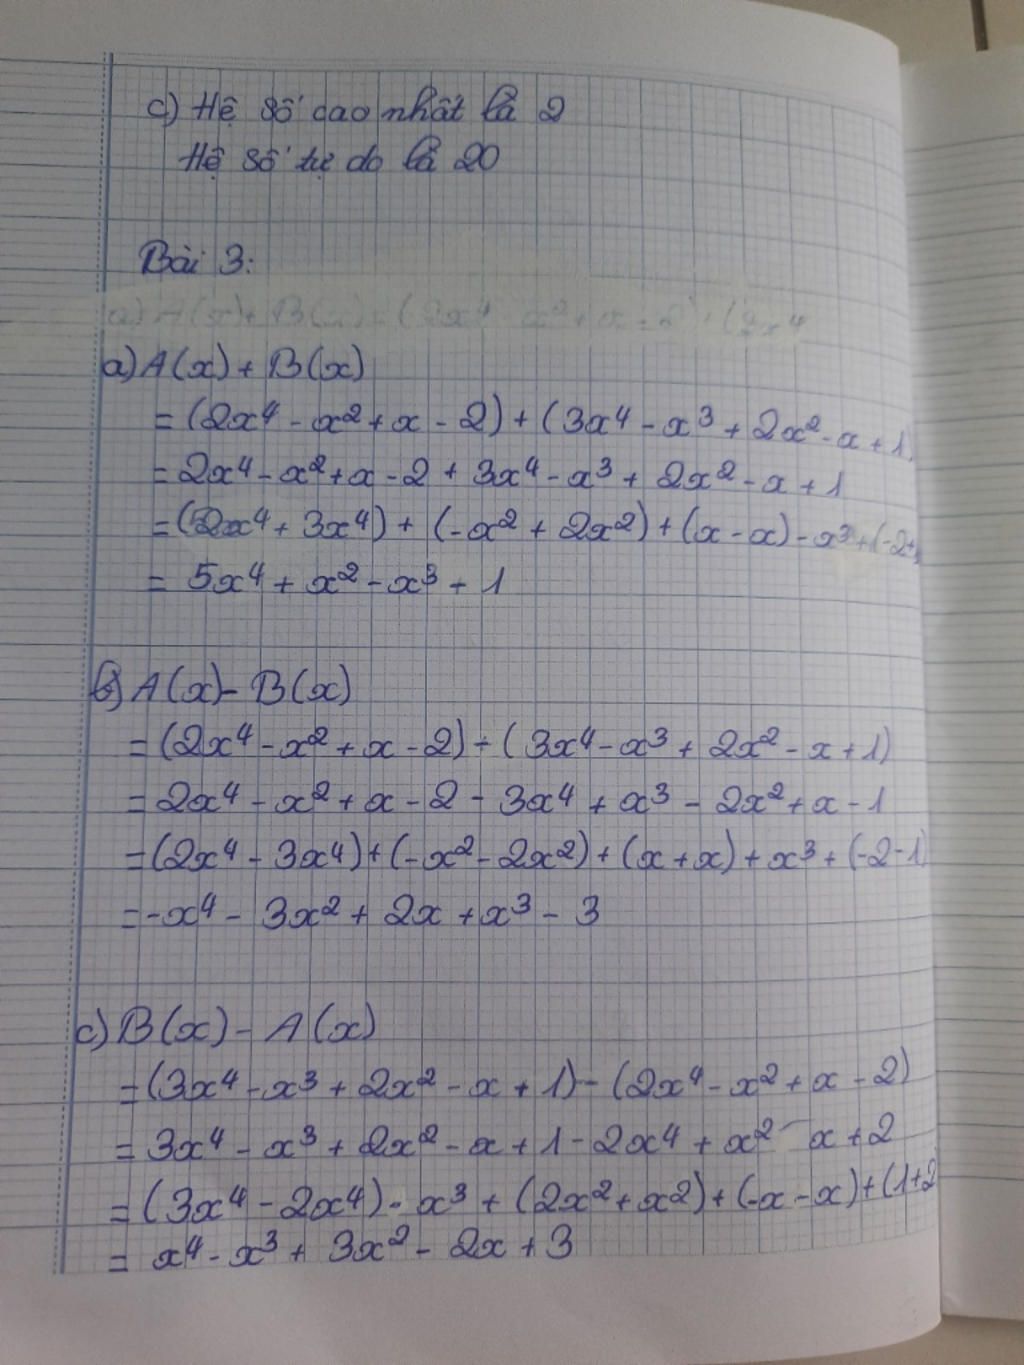 c) Hệ số cao nhất là 2
Hệ số tự do là 20
Bài 3:
a) A(x) + B(x) = (2x⁴ x² + x - 2) + (2x⁴
a) A(x) + B(x)
= (2x⁴ - x² + x - 2) + (3x⁴ - x³ + 2x² - x + 1)
= 2x⁴ - x² + x - 2 + 3x⁴ - x³ + 2x² - x + 1
= (2x⁴ + 3x⁴) + (-x² + 2x²) + (x - x) - x³ + (-2+
= 5x⁴ + x² - x³ - 1
b) A(x) - B(x)
= (2x⁴ - x² + x - 2) - (3x⁴ - x³ + 2x² - x + 1)
= 2x⁴ - x² + x - 2 - 3x⁴ + x³ - 2x² + x - 1
= (2x⁴ - 3x⁴) + (-x² - 2x²) + (x + x) + x³ + (-2 - 1)
= -x⁴ - 3x² + 2x + x³ - 3
c) B(x) - A(x)
= (3x⁴ - x³ + 2x² - x + 1) - (2x⁴ - x² + x - 2)
= 3x⁴ - x³ + 2x² - x + 1 - 2x⁴ + x² - x + 2
= (3x⁴ - 2x⁴) - x³ + (2x² + x²) + (-x - x) + (1 + 2
= x⁴ - x³ + 3x² - 2x + 3